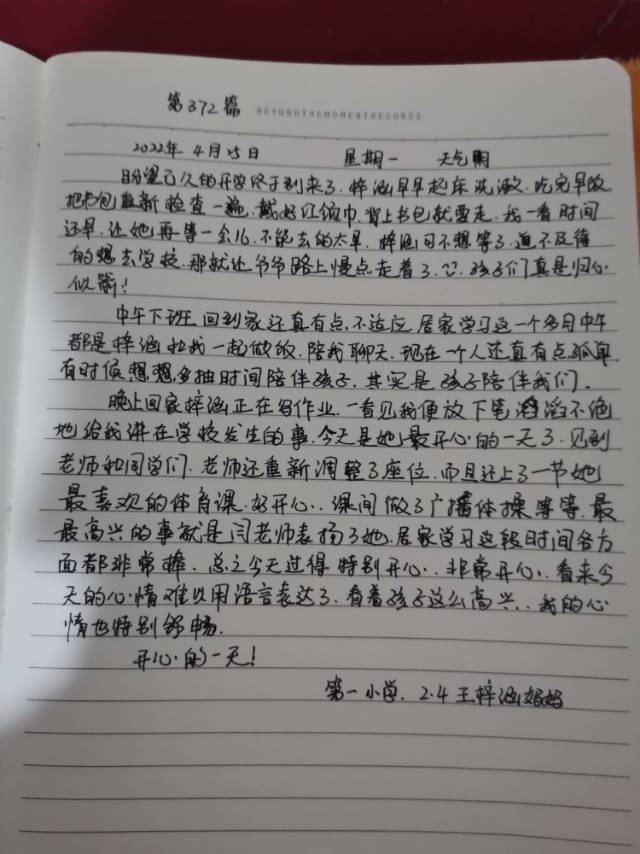 第372篇 BEYONDTHEMOMENTRECORDS
2022年4月25日 星期一 天气阴
盼望已久的开学终于到来了.梓涵早早起床洗漱.吃完早饭
把书包重新检查一遍.戴好红领巾.背上书包就要走.我一看时间
还早.让她再等一会儿.不能去的太早.梓涵可不想等了.迫不及待
的想去学校.那就让爷爷路上慢点走着了.孩子们真是归心
似箭!
中午下班回到家还真有点不适应.居家学习这一个多月中午
都是梓涵和我一起做饭.陪我聊天.现在一个人还真有点孤单.
有时候想想多抽时间陪伴孩子.其实是孩子陪伴我们.
晚上回家梓涵正在写作业.一看见我便放下笔滔滔不绝
地给我讲在学校发生的事.今天是她最开心的一天了.见到
老师和同学们.老师还重新调整了座位.而且还上了一节她
最喜欢的体育课.好开心..课间做了广播体操等等.最
最高兴的事就是闫老师表扬了她.居家学习这段时间各方
面都非常棒.总之今天过得特别开心..非常开心.看来今
天的心情难以用语言表达了.看着孩子这么高兴..我的心
情也特别舒畅.
开心的一天!
第一小学.2.4王梓涵妈妈